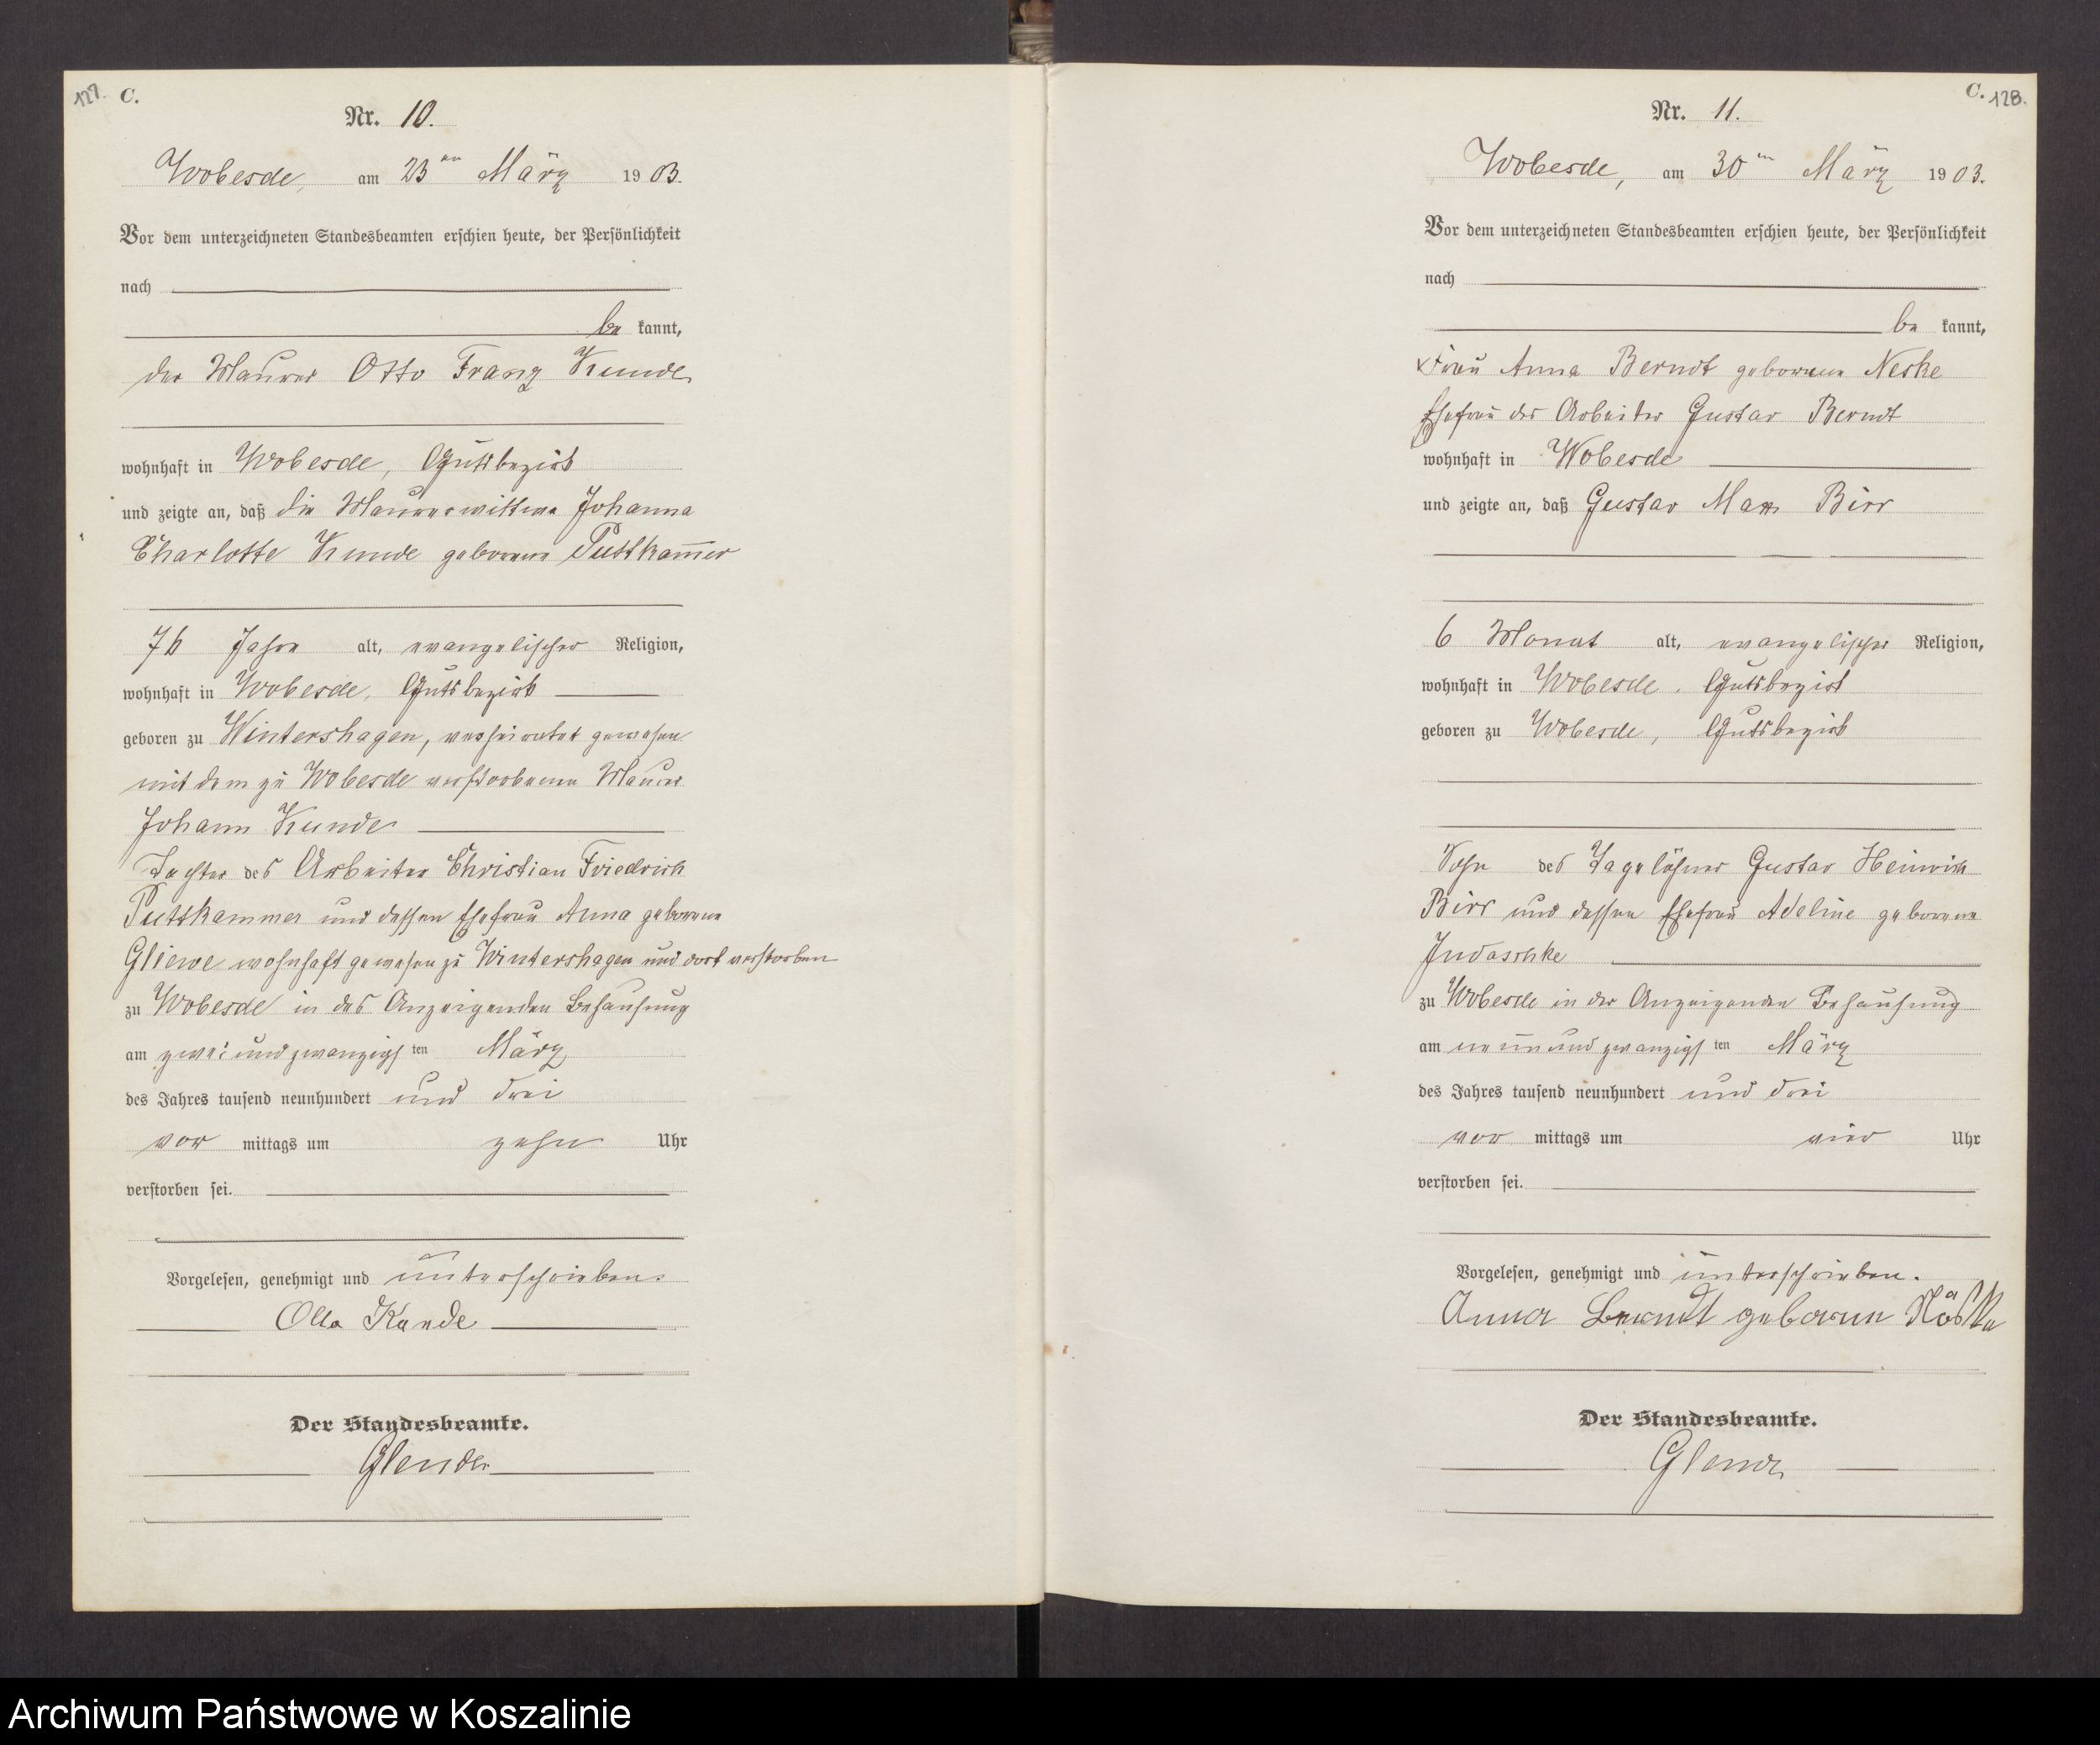 127. C.
Nr. 10.
Wobesde, am 23ten März 1903.
Vor dem unterzeichneten Standesbeamten erschien heute, der Persönlichkeit
nach
be kannt,
der Maurer Otto Franz Kunde
wohnhaft in Wobesde, Gutsbezirk
und zeigte an, daß die Maurerwittwe Johanna
Charlotte Kunde geborene Puttkam̅er
76 Jahre alt, evangelischer Religion,
wohnhaft in Wobesde, Gutsbezirk
geboren zu Wintershagen, verheiratet gewesen
mit dem zu Wobesde verstorbenen Maurer
Johann Kunde
Tochter des Arbeiter Christian Friedrich
Puttkammer und dessen Ehefrau Anna geborene
Gliewe wohnhaft gewesen zu Wintershagen und dort verstorben
zu Wobesde in des Anzeigenden Behausung
am zwei und zwanzigsten März
des Jahres tausend neunhundert und drei
vor mittags um zehn Uhr
verstorben sei.
Vorgelesen, genehmigt und unterschrieben.
Otto Kunde
Der Standesbeamte.
C. 128.
Nr. 11.
Wobesde, am 30ten März 1903.
Vor dem unterzeichneten Standesbeamten erschien heute, der Persönlichkeit
nach
be kannt,
Frau Anna Berndt geborene Neske
Ehefrau des Arbeiter Gustav Berndt
wohnhaft in Wobesde
und zeigte an, daß Gustav Max Birr
6 Monat alt, evangelischer Religion,
wohnhaft in Wobesde, Gutsbezirk
geboren zu Wobesde, Gutsbezirk
Sohn des Tagelöhner Gustav Heinrich
Birr und dessen Ehefrau Adeline geborene
Judaschke
zu Wobesde in der Anzeigenden Behausung
am neun und zwanzigsten März
des Jahres tausend neunhundert und drei
vor mittags um vier Uhr
verstorben sei.
Vorgelesen, genehmigt und unterschrieben.
Anna Berndt geboren
Der Standesbeamte.
Archiwum Państwowe w Koszalinie